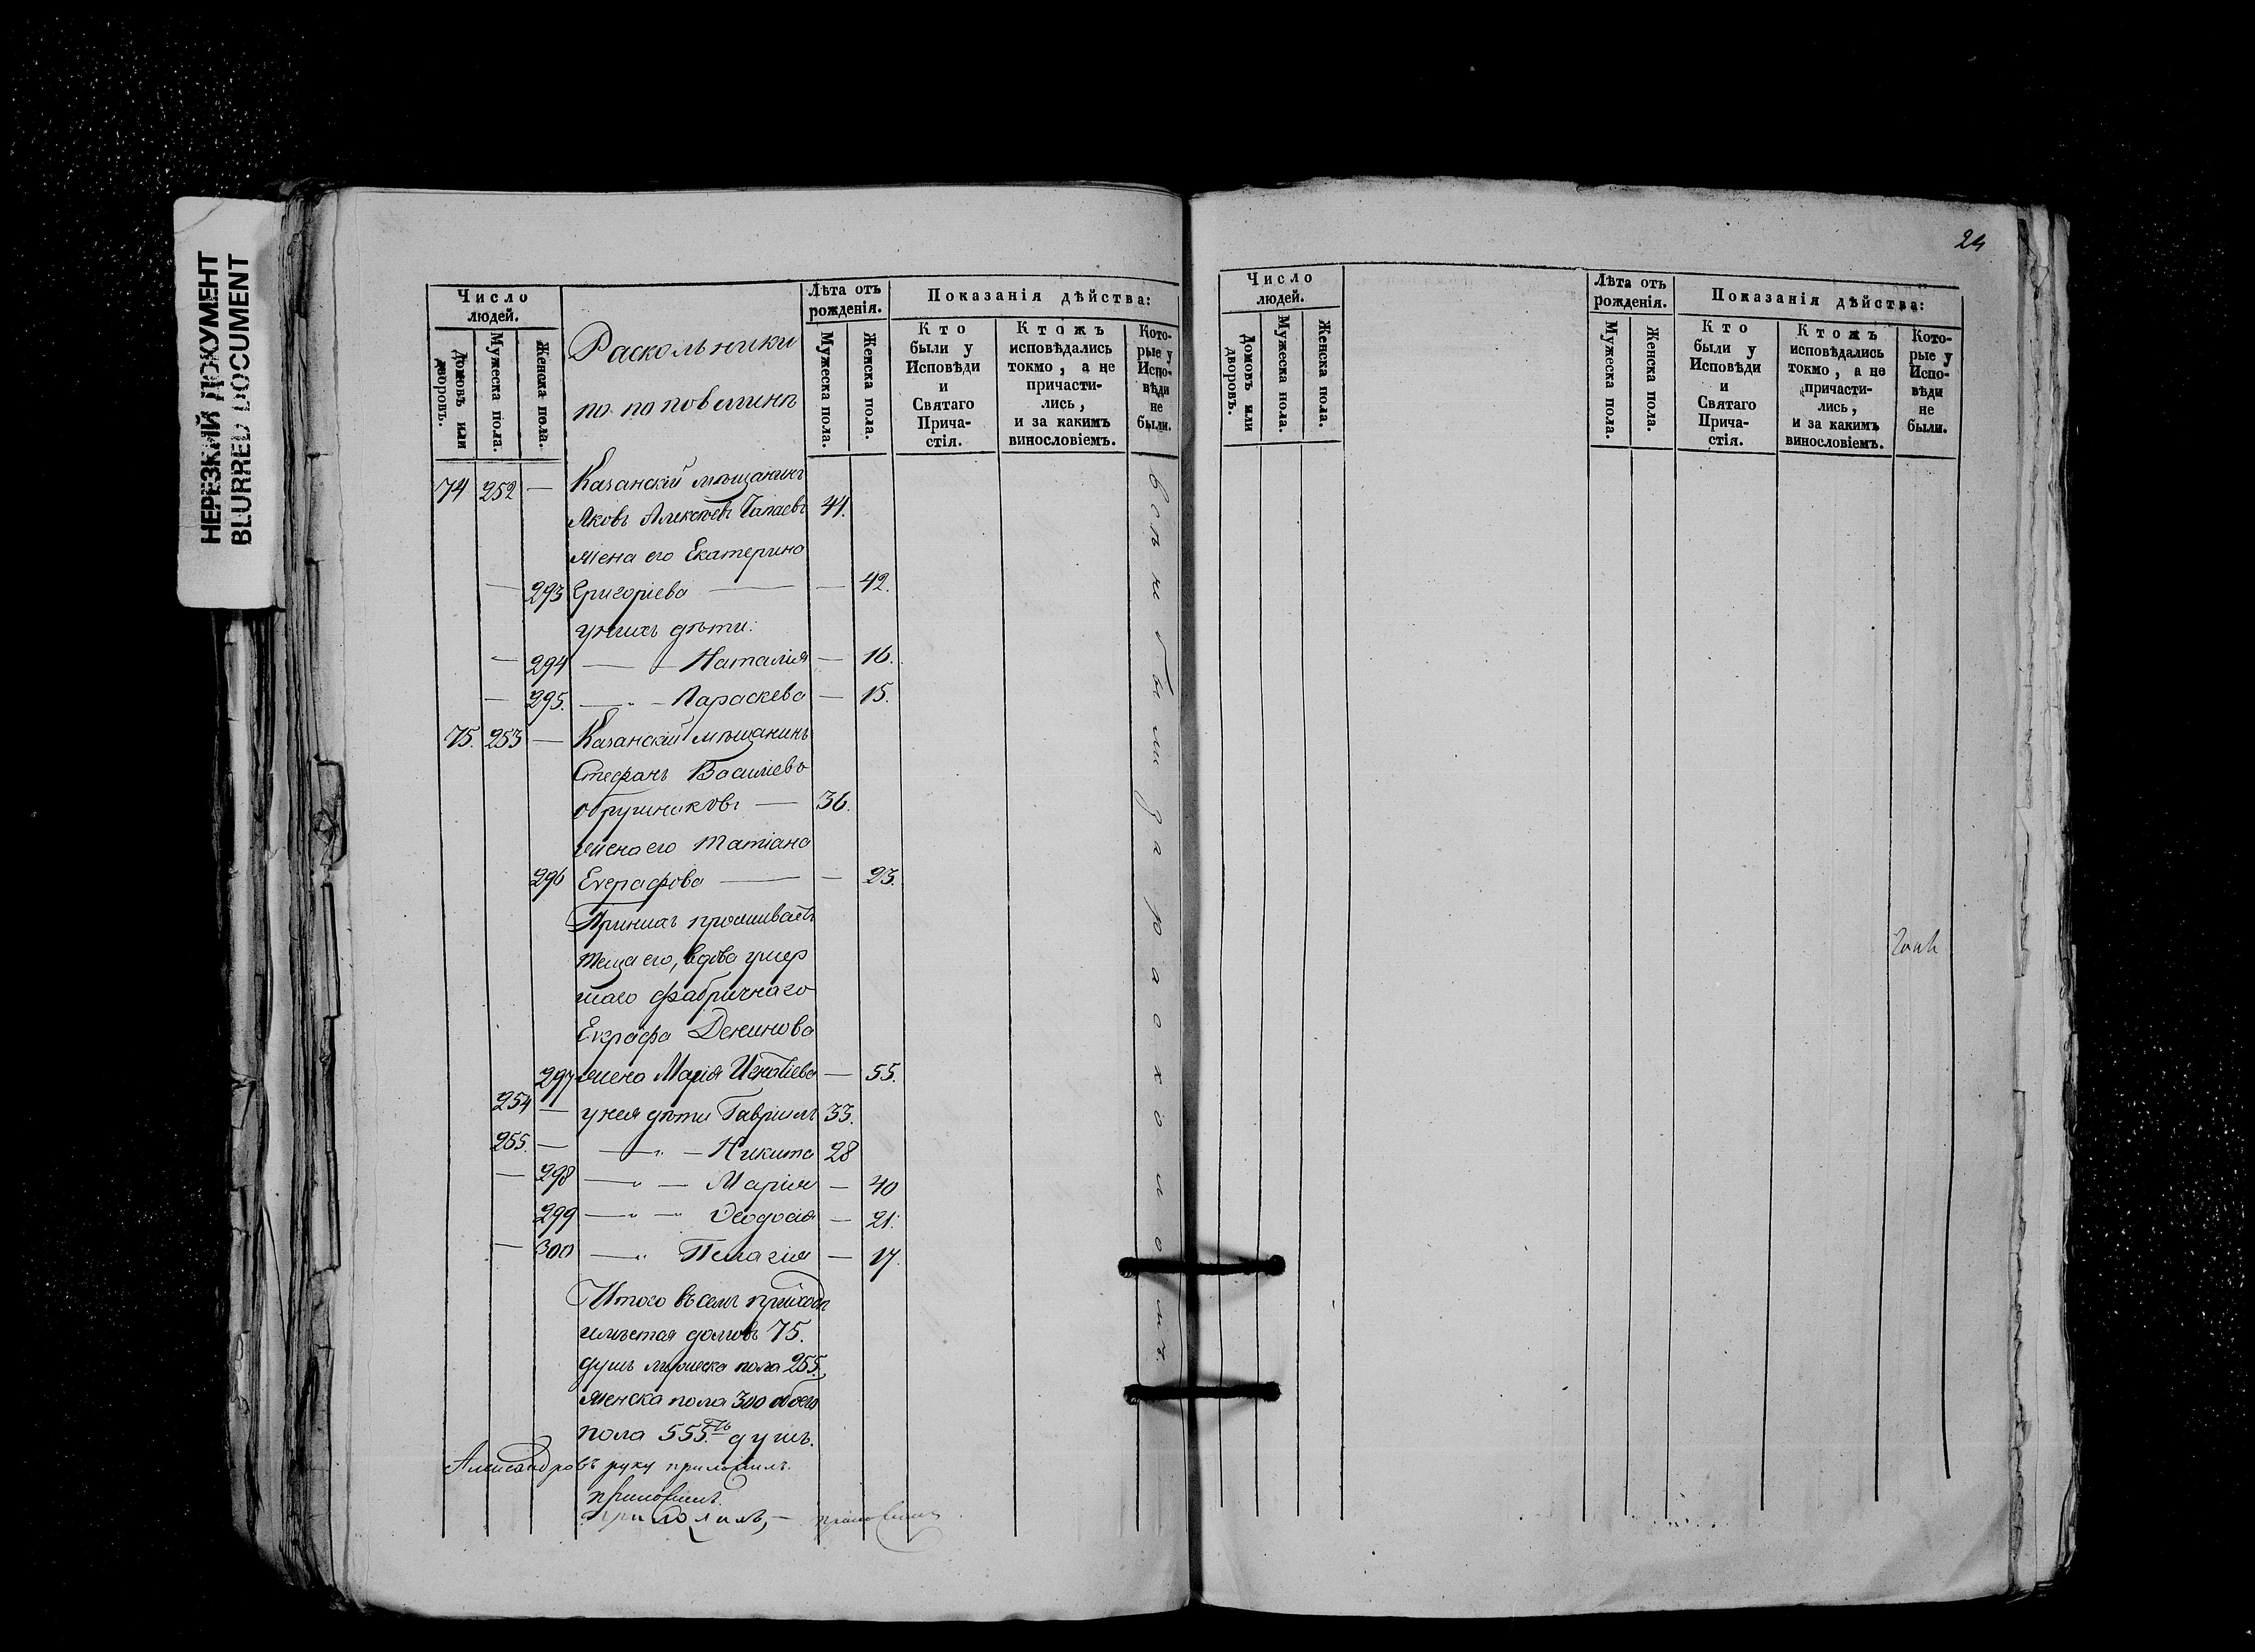 НЕРЕЗКИЙ ДОКУМЕНТ
BLURRED DOCUMENT
24
Число людей.
Домовъ или дворовъ.
Мужеска пола.
Женска пола.
Раскольники
по поповщинѣ
Лѣта отъ рожденія.
Мужеска пола.
Женска пола.
Показанія дѣйства:
Кто были у Исповѣди и Святаго Прича-стія.
Ктожъ исповѣдались токмо, а не причасти-лись, и за какимъ винословіемъ.
Кото-рые у Испо-вѣди не были.
74 252 — Казанскій мѣщанинъ
Яковъ Алексѣевъ 44.
жена его Екатерина
— 293 Григоріева — — 42.
у нихъ дѣти:
— 294 — Наталія — 16.
— 295. — Параскева — 15.
75. 253 — Казанскій мѣщанинъ
Стефанъ Василіевъ
36.
жена его Татіана
296 Евграфова — — 23.
При нихъ проживаетъ
теща его, вдова умер
шаго фабричнаго
Евграфа
297 жена Марія Игнатіева — 55.
254 — у нея дѣти Гавріилъ 33.
255. — — Никита 28
— 298 — Марія — 40
299 — Ѳеодосія — 21.
— 300 — Пелагія — 17.
Итого въ семъ приходѣ
домовъ 75.
душъ мужеска пола 255.
женска пола 300 обоего
пола 555.ть душъ.
Александровъ руку приложилъ.
приложилъ.
приложилъ, — приложилъ
всѣ не были за расколомъ.
Число людей.
Домовъ или дворовъ.
Мужеска пола.
Женска пола.
Лѣта отъ рожденія.
Мужеска пола.
Женска пола.
Показанія дѣйства:
Кто были у Исповѣди и Святаго Прича-стія.
Ктожъ исповѣдались токмо, а не причасти-лись, и за какимъ винословіемъ.
Кото-рые у Испо-вѣди не были.